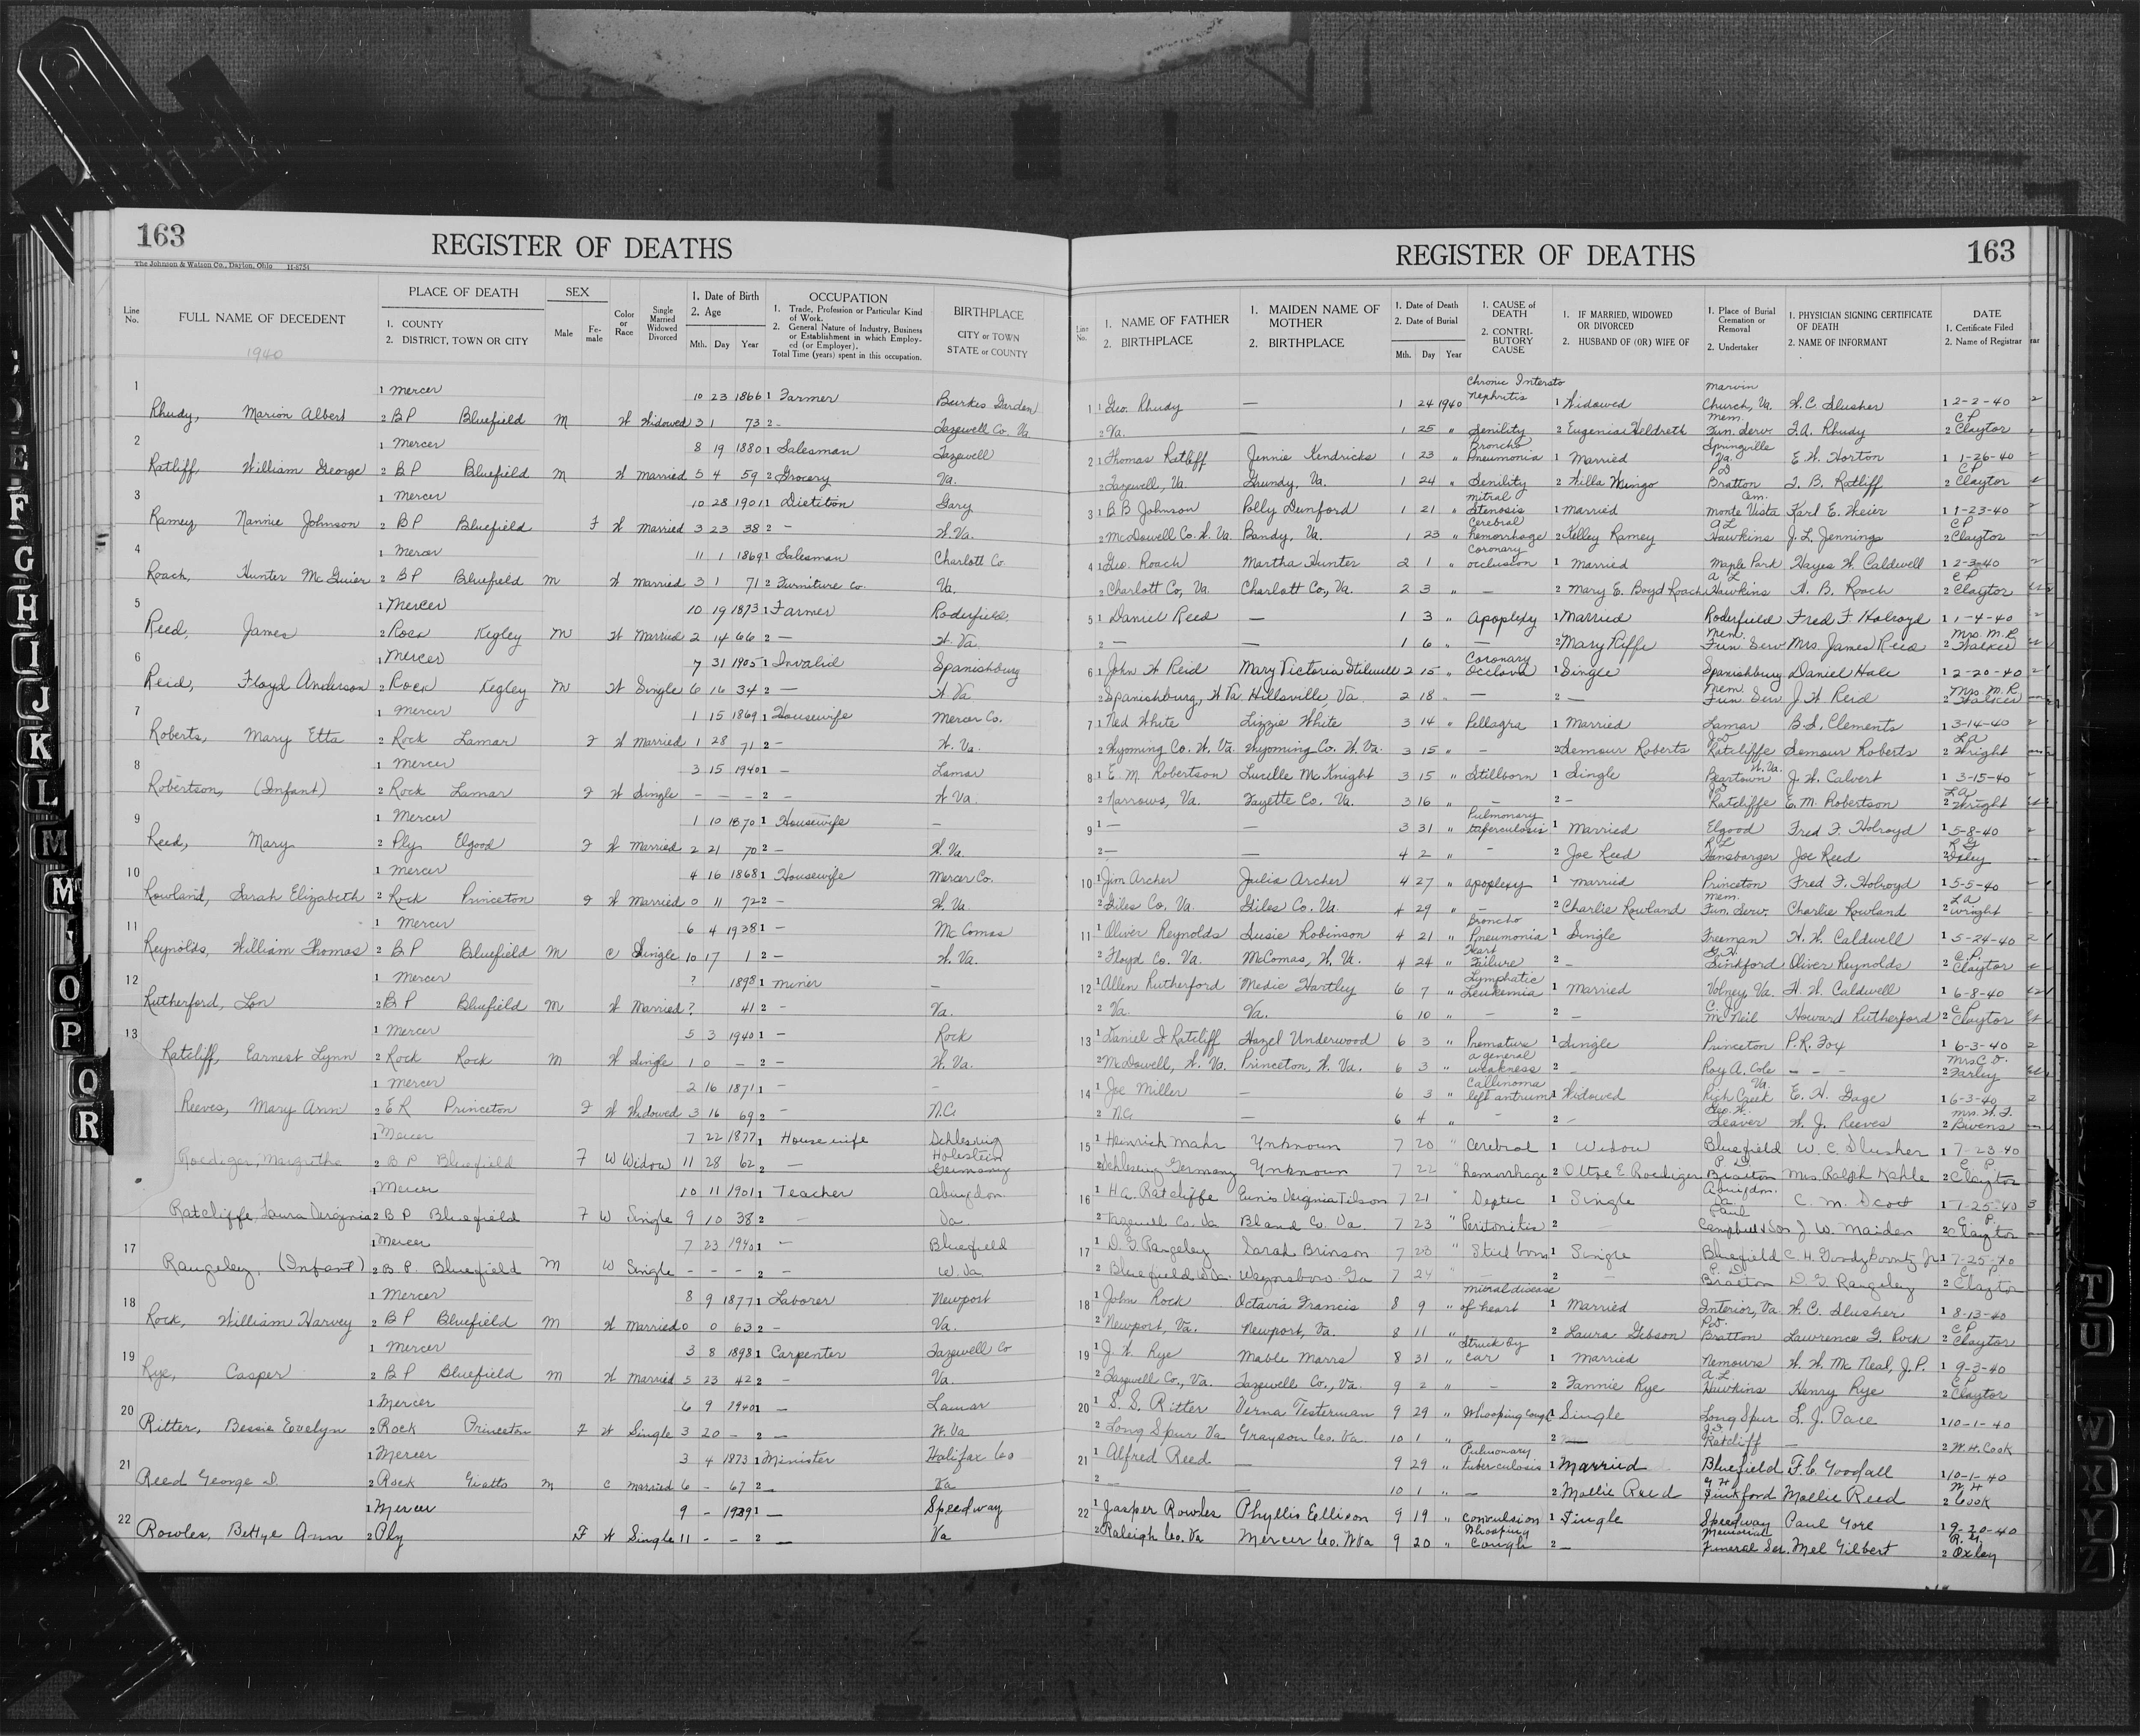 163
REGISTER OF DEATHS
The Johnson & Watson Co., Dayton, Ohio
Line No.
FULL NAME OF DECEDENT
1940
PLACE OF DEATH
1. COUNTY
2. DISTRICT, TOWN OR CITY
SEX
Male
Fe-male
Color or Race
Single Married Widowed Divorced
1. Date of Birth
2. Age
Mth. Day Year
OCCUPATION
1. Trade, Profession or Particular Kind of Work.
2. General Nature of Industry, Business or Establishment in which Employed (or Employer).
Total Time (years) spent in this occupation.
BIRTHPLACE
CITY or TOWN
STATE or COUNTY
1
1 Mercer 10 23 1866 1 Farmer Burkes Garden
Rhudy, Marion Albert 2 B P Bluefield M W Widowed 3 1 73 2 - Tazewell Co. Va
2
1 Mercer 8 19 1880 1 Salesman Tazewell
Ratliff, William George 2 B P Bluefield M W Married 5 4 59 2 Grocery Va.
3
1 Mercer 10 28 1901 1 Dietition Gary
Ramey, Nannie Johnson 2 B P Bluefield F W Married 3 23 38 2 - W. Va.
4
1 Mercer 11 1 1869 1 Salesman Charlott Co
Roach, Hunter McGuier 2 B P Bluefield M W Married 3 1 71 2 Furniture Co. Va.
5
1 Mercer 10 19 1873 1 Farmer Roderfield,
Reed, James 2 Rock Kegley M W Married 2 14 66 2 - W. Va.
6
1 Mercer 7 31 1905 1 Invalid Spanishburg
Reid, Floyd Anderson 2 Rock Kegley M W Single 6 16 34 2 - W Va
7
1 Mercer 1 15 1869 1 Housewife Mercer Co.
Roberts, Mary Etta 2 Rock Lamar F W Married 1 28 71 2 - W. Va.
8
1 Mercer 3 15 1940 1 - Lamar
Robertson, (Infant) 2 Rock Lamar F W Single - - - 2 - W Va.
9
1 Mercer 1 10 1870 1 Housewife -
Reed, Mary 2 Ply Elgood F W Married 2 21 70 2 - W. Va.
10
1 Mercer 4 16 1868 1 Housewife Mercer Co.
Rowland, Sarah Elizabeth 2 Rock Princeton F W Married 0 11 72 2 - W. Va.
11
1 Mercer 6 4 1938 1 - McComas
Reynolds, William Thomas 2 B P Bluefield M C Single 10 17 1 2 - W. Va.
12
1 Mercer ? 1898 1 miner -
Rutherford, Lon 2 B P Bluefield M W Married ? 41 2 - Va.
13
1 Mercer 5 3 1940 1 - Rock
Ratcliff, Earnest Lynn 2 Rock Rock M W Single 1 0 - 2 - W. Va.
1 Mercer 2 16 1871 1 - -
Reeves, Mary Ann 2 E R Princeton F W Widowed 3 16 69 2 - N.C.
1 Mercer 7 22 1877 1 Housewife Schleswig
Roediger, Margretha 2 B P Bluefield F W Widow 11 28 62 2 - Holestein Germany
1 Mercer 10 11 1901 1 Teacher Abingdon
Ratcliffe, Laura Virginia 2 B P Bluefield F W Single 9 10 38 2 - Va.
17
1 Mercer 7 23 1940 1 - Bluefield
Rangeley, (Infant) 2 B. P. Bluefield M W Single - - - 2 - W. Va
18
1 Mercer 8 9 1877 1 Laborer Newport
Rock, William Harvey 2 B P Bluefield M W Married 0 0 63 2 - Va.
19
1 Mercer 3 8 1898 1 Carpenter Tazewell Co
Rye, Casper 2 B P Bluefield M W Married 5 23 42 2 - Va.
20
1 Mercer 6 9 1940 1 - Lamar
Ritter, Bessie Evelyn 2 Rock Princeton F W Single 3 20 - 2 - W. Va
21
1 Mercer 3 4 1873 1 Minister Halifax Co
Reed George D. 2 Rock Giatto M C Married 6 - 67 2 - Va
22
1 Mercer 9 - 1939 1 - Speedway
Rowles, Bettye Ann 2 Ply F W Single 11 - - 2 - Va
REGISTER OF DEATHS
163
Line No.
1. NAME OF FATHER
2. BIRTHPLACE
1. MAIDEN NAME OF MOTHER
2. BIRTHPLACE
1. Date of Death
2. Date of Burial
Mth. Day Year
1. CAUSE of DEATH
2. CONTRIBUTORY CAUSE
1. IF MARRIED, WIDOWED OR DIVORCED
2. HUSBAND OF (OR) WIFE OF
1. Place of Burial Cremation or Removal
2. Undertaker
1. PHYSICIAN SIGNING CERTIFICATE OF DEATH
2. NAME OF INFORMANT
DATE
1. Certificate Filed
2. Name of Registrar
1 1 Geo. Rhudy - 1 24 1940 Chronic Intersto Nephritis 1 Widowed Marvin Church, Va. W. C. Slusher 1 2-2-40
2 Va. - 1 25 " Senility 2 Eugenia Heldreth Mem. Fun. Serv. F. A. Rhudy 2 C P Claytor
2 1 Thomas Ratliff Jennie Kendricks 1 23 " Broncho Pneumonia 1 Married Springville Va. E. W. Horton 1 1-26-40
2 Tazewell, Va. Grundy, Va. 1 24 " Senility 2 Willa Mungo P D Bratton T. B. Ratliff 2 C P Claytor
3 1 B B Johnson Polly Dunford 1 21 " Mitral Stenosis 1 Married Monte Vista Cem. Karl E. Weier 1 1-23-40
2 McDowell Co. W. Va. Bandy, Va. 1 23 " Cerebral hemorrhage 2 Kelley Ramey A L Hawkins J. L. Jennings 2 C P Claytor
4 1 Geo. Roach Martha Hunter 2 1 " Coronary occlusion 1 Married Maple Park Hayes W. Caldwell 1 2-3-40
2 Charlott Co, Va. Charlott Co., Va. 2 3 " - 2 Mary E. Boyd Roach A L Hawkins H. B. Roach 2 C P Claytor
5 1 Daniel Reed - 1 3 " Apoplexy 1 Married Roderfield Fred F Holroyd 1 1-4-40
2 - - 1 6 " 2 Mary Riffe Mem. Fun. Serv. Mrs. James Reed 2 Mrs. M. R. Walker
6 1 John W Reid Mary Victoria Stilwell 2 15 " Coronary 1 Single Spanishburg Daniel Hale 1 2-20-40
2 Spanishburg, W Va Hillsville, Va. 2 18 " - 2 - Mem. Fun. Serv. J. W Reid 2 Mrs M. R. Walker
7 1 Ned White Lizzie White 3 14 " Pellagra 1 Married Lamar B. S. Clements 1 3-14-40
2 Wyoming Co. W. Va. Wyoming Co. W. Va. 3 15 " - 2 Semour Roberts J D Ratcliffe Semour Roberts 2 L A Wright
8 1 E. M Robertson Lucille McKnight 3 15 " Stillborn 1 Single Peartown W. Va. J. W. Calvert 1 3-15-40
2 Narrows, Va. Fayette Co. Va. 3 16 " - 2 - J D Ratcliffe E. M. Robertson 2 L A Wright
9 1 - - 3 31 " Pulmonary tuberculosis 1 Married Elgood Fred F. Holroyd 1 5-8-40
2 - - 4 2 " - 2 Joe Reed R L Hansbarger Joe Reed 2 R G Oxley
10 1 Jim Archer Julia Archer 4 27 " apoplexy 1 Married Princeton Fred F. Holroyd 1 5-5-40
2 Giles Co. Va. Giles Co. Va. 4 29 " - 2 Charlie Rowland Mem. Fun. Serv. Charlie Rowland 2 L A Wright
11 1 Oliver Reynolds Susie Robinson 4 21 " Broncho Pneumonia 1 Single Freeman H. W. Caldwell 1 5-24-40
2 Floyd Co. Va. McComas, W. Va. 4 24 " Heart Failure 2 - G. H. Sinkford Oliver Reynolds 2 C. P. Claytor
12 1 Allen Rutherford Medie Hartley 6 7 " Lymphatic Leukemia 1 Married Volney, Va. H. W. Caldwell 1 6-8-40
2 Va. Va. 6 10 " - 2 - McNeil Howard Rutherford 2 C P Claytor
13 1 Daniel F Ratcliff Hazel Underwood 6 3 " Premature 1 Single Princeton P. R. Fox 1 6-3-40
2 McDowell, W. Va. Princeton, W. Va. 6 3 " a general weakness 2 - Roy A. Cole - - - 2 Mrs C. D. Farley
14 1 Joe Miller - 6 3 " Callinoma left antrum 1 Widowed Rich Creek Va. E. H. Gage 1 6-3-40
2 N.C. - 6 4 " - 2 - Geo. W. Seaver W. J. Reeves 2 Mrs. W. F. Bivens
15 1 Heinrich Mahr Unknown 7 20 " Cerebral 1 Widow Bluefield W. C. Slusher 1 7-23-40
2 Schleswig Germany Unknown 7 22 " hemorrhage 2 Ottoe E Roediger P. D. Bratton Mrs Ralph Kahle 2 C P Claytor
16 1 H. A. Ratcliffe Eunis Virginia Tilson 7 21 " Septic 1 Single Abingdon. Va. C. M. Scott 1 7-25-40
2 Tazewell Co. Va Bland Co. Va. 7 23 " Peritonitis 2 - Paul Campbell & Son J. W. Maiden 2 C. P. Claytor
17 1 D. G Rangeley Sarah Brinson 7 23 " Still born 1 Single Bluefield C. H. Goodykoontz Jr 1 7-25-40
2 Bluefield W. Va. Waynsboro Ga 7 24 " - 2 - P. D. Bratton D. G Rangeley 2 C. P. Claytor
18 1 John Rock Octavia Francis 8 9 " mitral disease of heart 1 Married Interior, Va. W. C. Slusher 1 8-13-40
2 Newport, Va. Newport, Va. 8 11 " 2 Laura Gibson P. D. Bratton Lawrence G. Rock 2 C P Claytor
19 1 J. W. Rye Mable Marrs 8 31 " Struck by car 1 Married Nemours W. W. McNeal, J. P. 1 9-3-40
2 Tazewell Co., Va. Tazewell Co., Va. 9 2 " - 2 Fannie Rye A. L. Hawkins Henry Rye 2 C P Claytor
20 1 S. S. Ritter Verna Testerman 9 29 " Whooping Cough 1 Single Long Spur L. J. Pace 1 10-1-40
2 Long Spur Va Grayson Co. Va. 10 1 " 2 - J. D. Ratcliff - 2 W. H. Cook
21 1 Alfred Reed - 9 29 " Pulmonary tuberculosis 1 Married Bluefield F. C. Goodall 1 10-1-40
2 - - 10 1 " - 2 Mollie Reed G H Sinkford Mollie Reed 2 W H Cook
22 1 Jasper Rowles Phyllis Ellison 9 19 " convulsion 1 Single Speedway Paul Gore 1 9-20-40
2 Raleigh Co. Va Mercer Co. W Va 9 20 " Whooping Cough 2 - Memorial Funeral Ser. Mel Gilbert 2 R. G. Oxley
E
F
G
H
I
J
K
L
M
O
P
Q
R
T
U
W
X
Y
Z